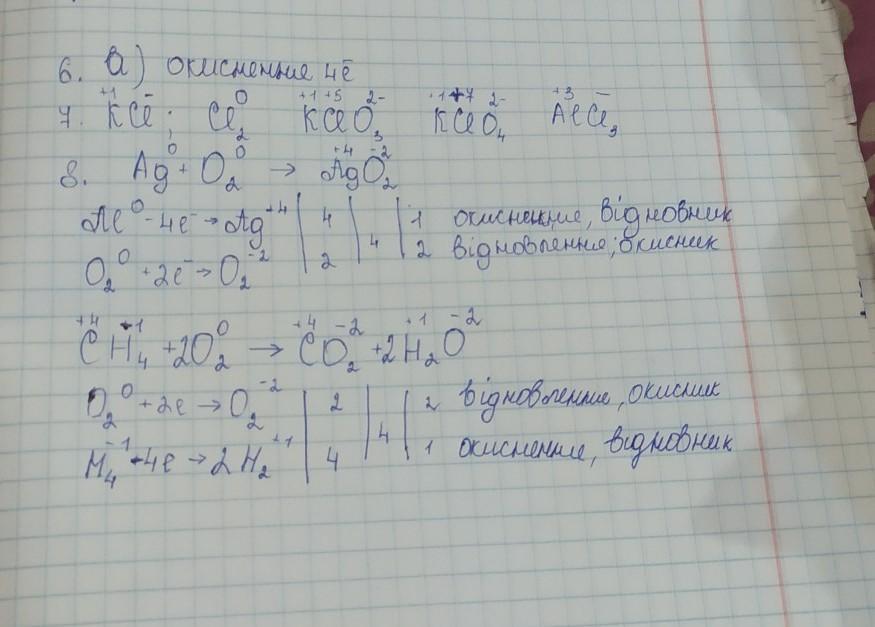 6. а) окиснення 4ē
7. K⁺¹Cl⁻; Cl₂⁰ K⁺¹Cl⁺⁵O₃²⁻ K⁺¹Cl⁺⁷O₄²⁻ Al⁺³Cl₃⁻
8. Ag⁰ + O₂⁰ → Ag⁺⁴O₂⁻²
Al⁰ - 4e⁻ → Ag⁺⁴ | 4 | 4 | 1 окиснення, відновник
O₂⁰ + 2e⁻ → O₂⁻² | 2 | | 2 відновлення; окисник
C⁺⁴H₄⁻¹ + 2O₂⁰ → C⁺⁴O₂⁻² + 2H₂⁺¹O⁻²
O₂⁰ + 2e → O₂⁻² | 2 | 4 | 2 відновлення, окисник
H₄⁻¹ - 4e → 2H₂⁺¹ | 4 | | 1 окиснення, відновник